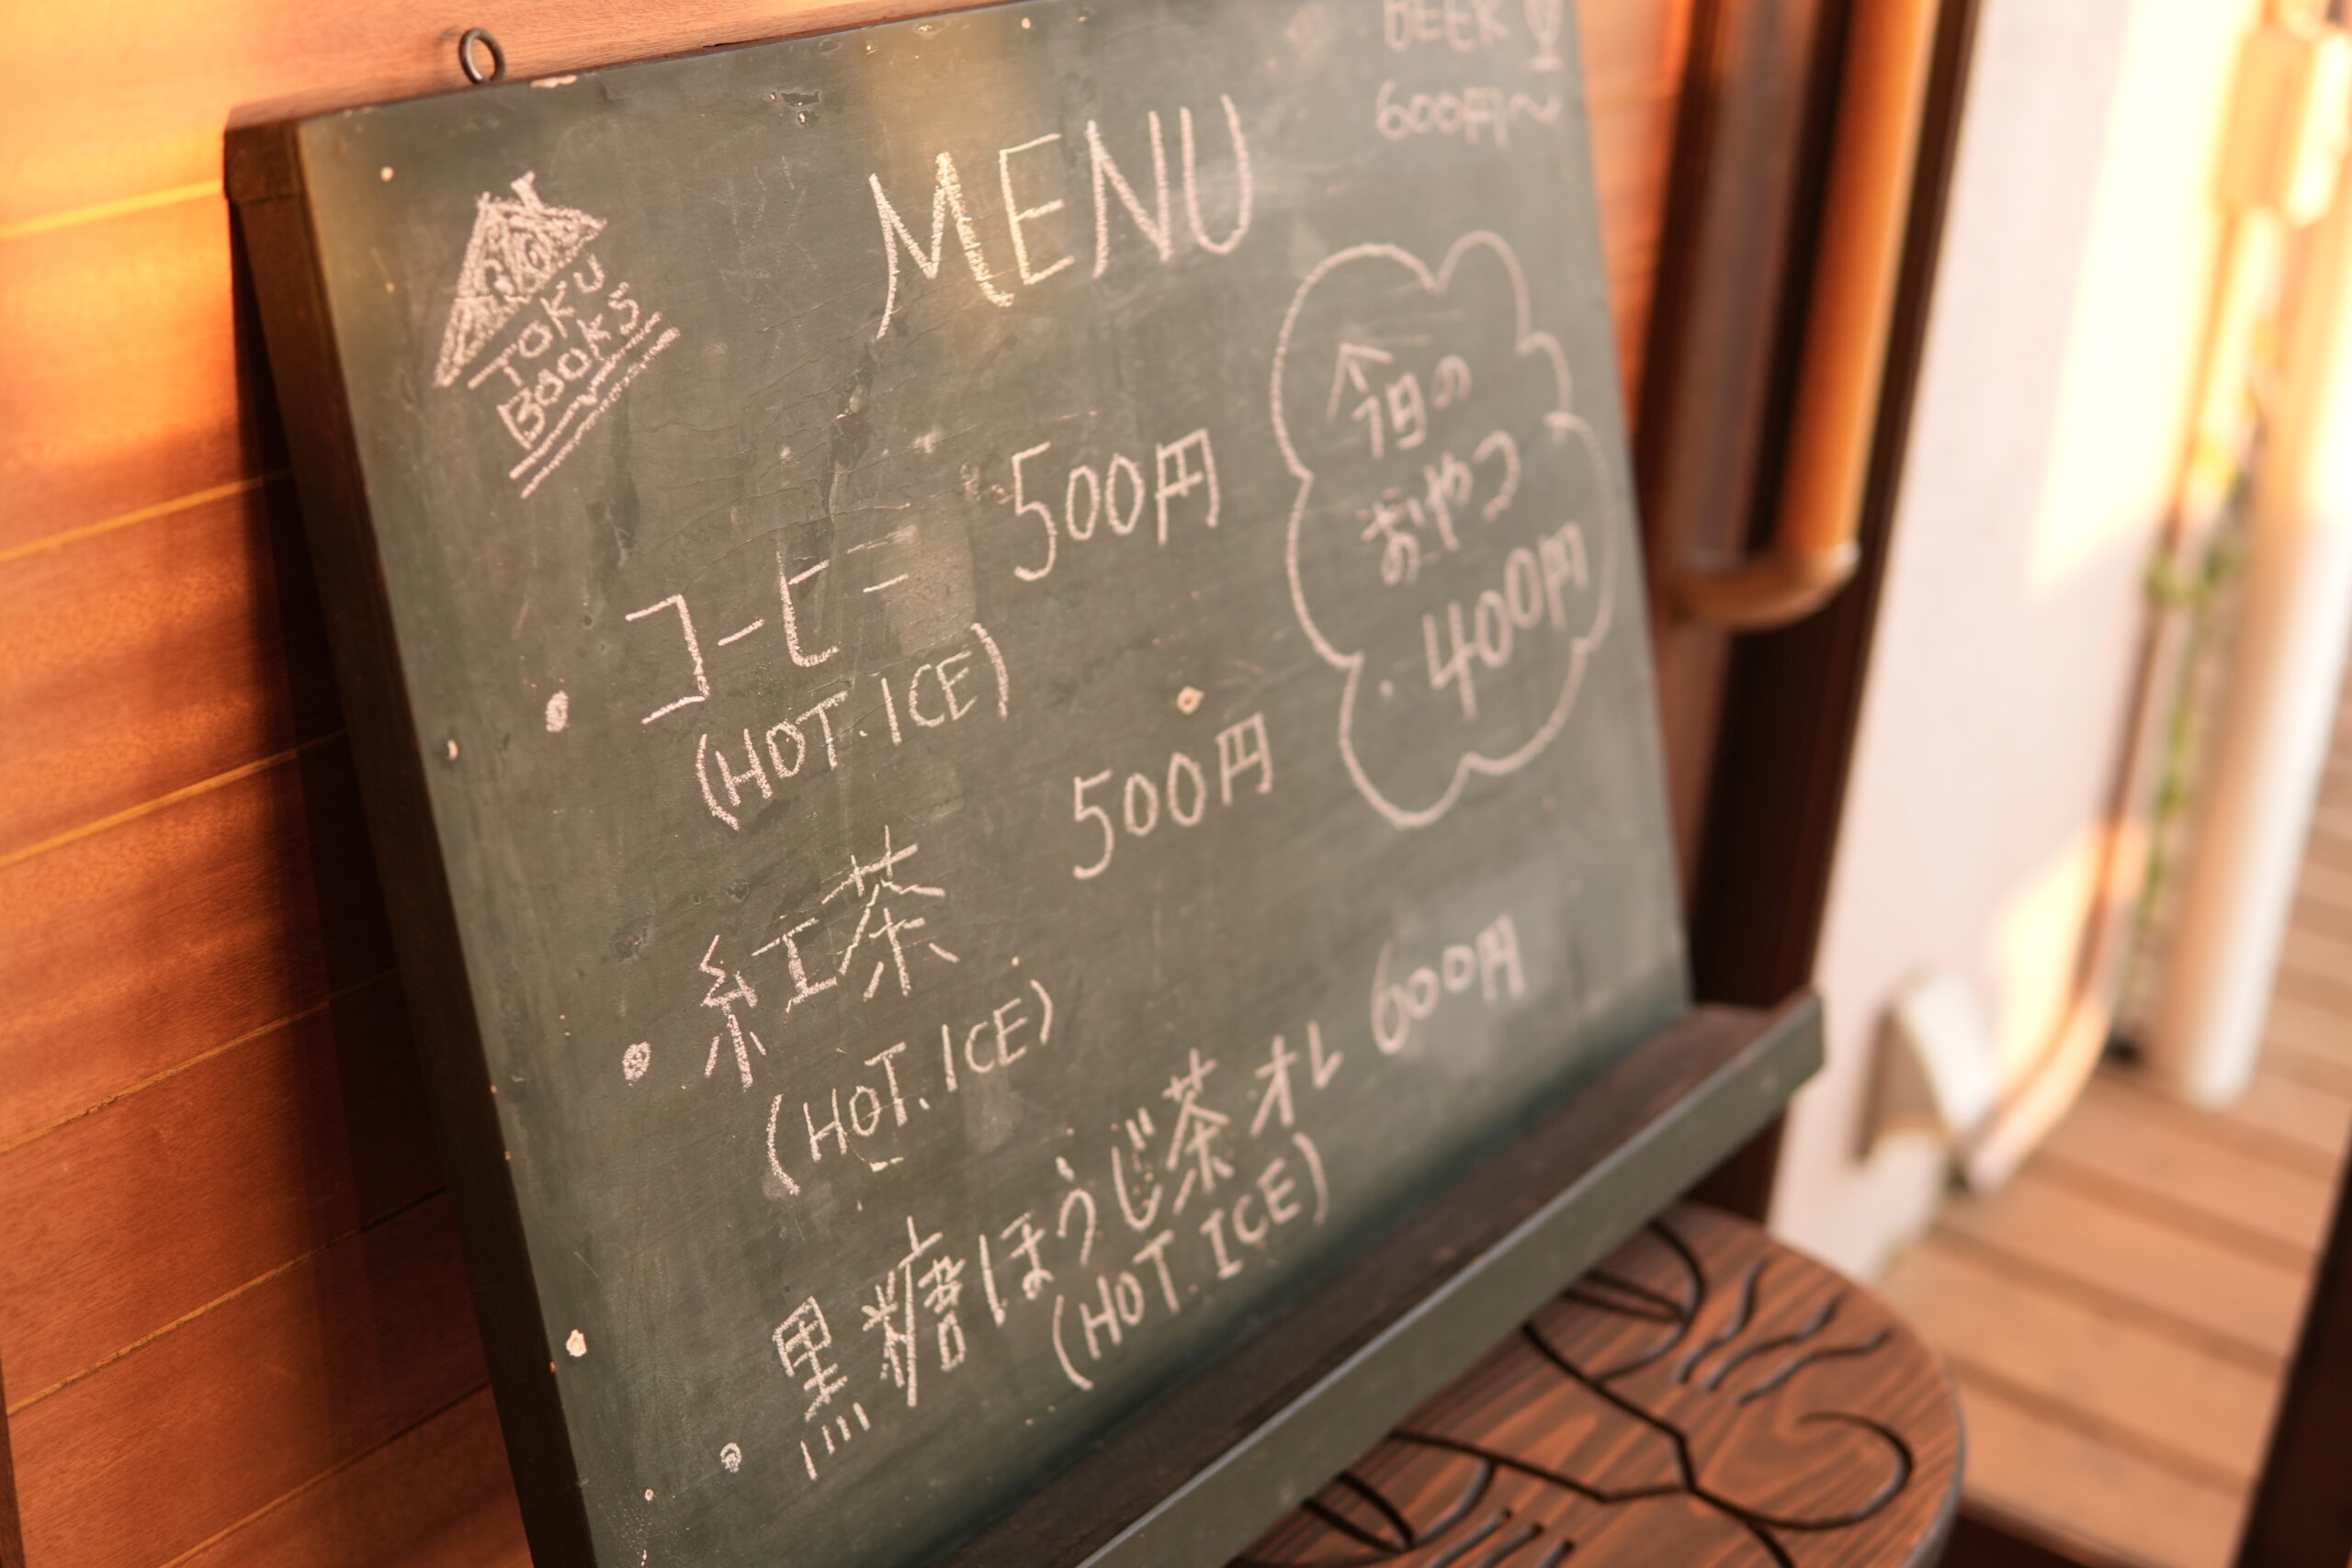 TOKU
BOOKS
MENU
BEER
600円〜
・コーヒー 500円
(HOT. ICE)
・紅茶 500円
(HOT. ICE)
・黒糖ほうじ茶オレ 600円
(HOT. ICE)
今日の
おやつ
・400円